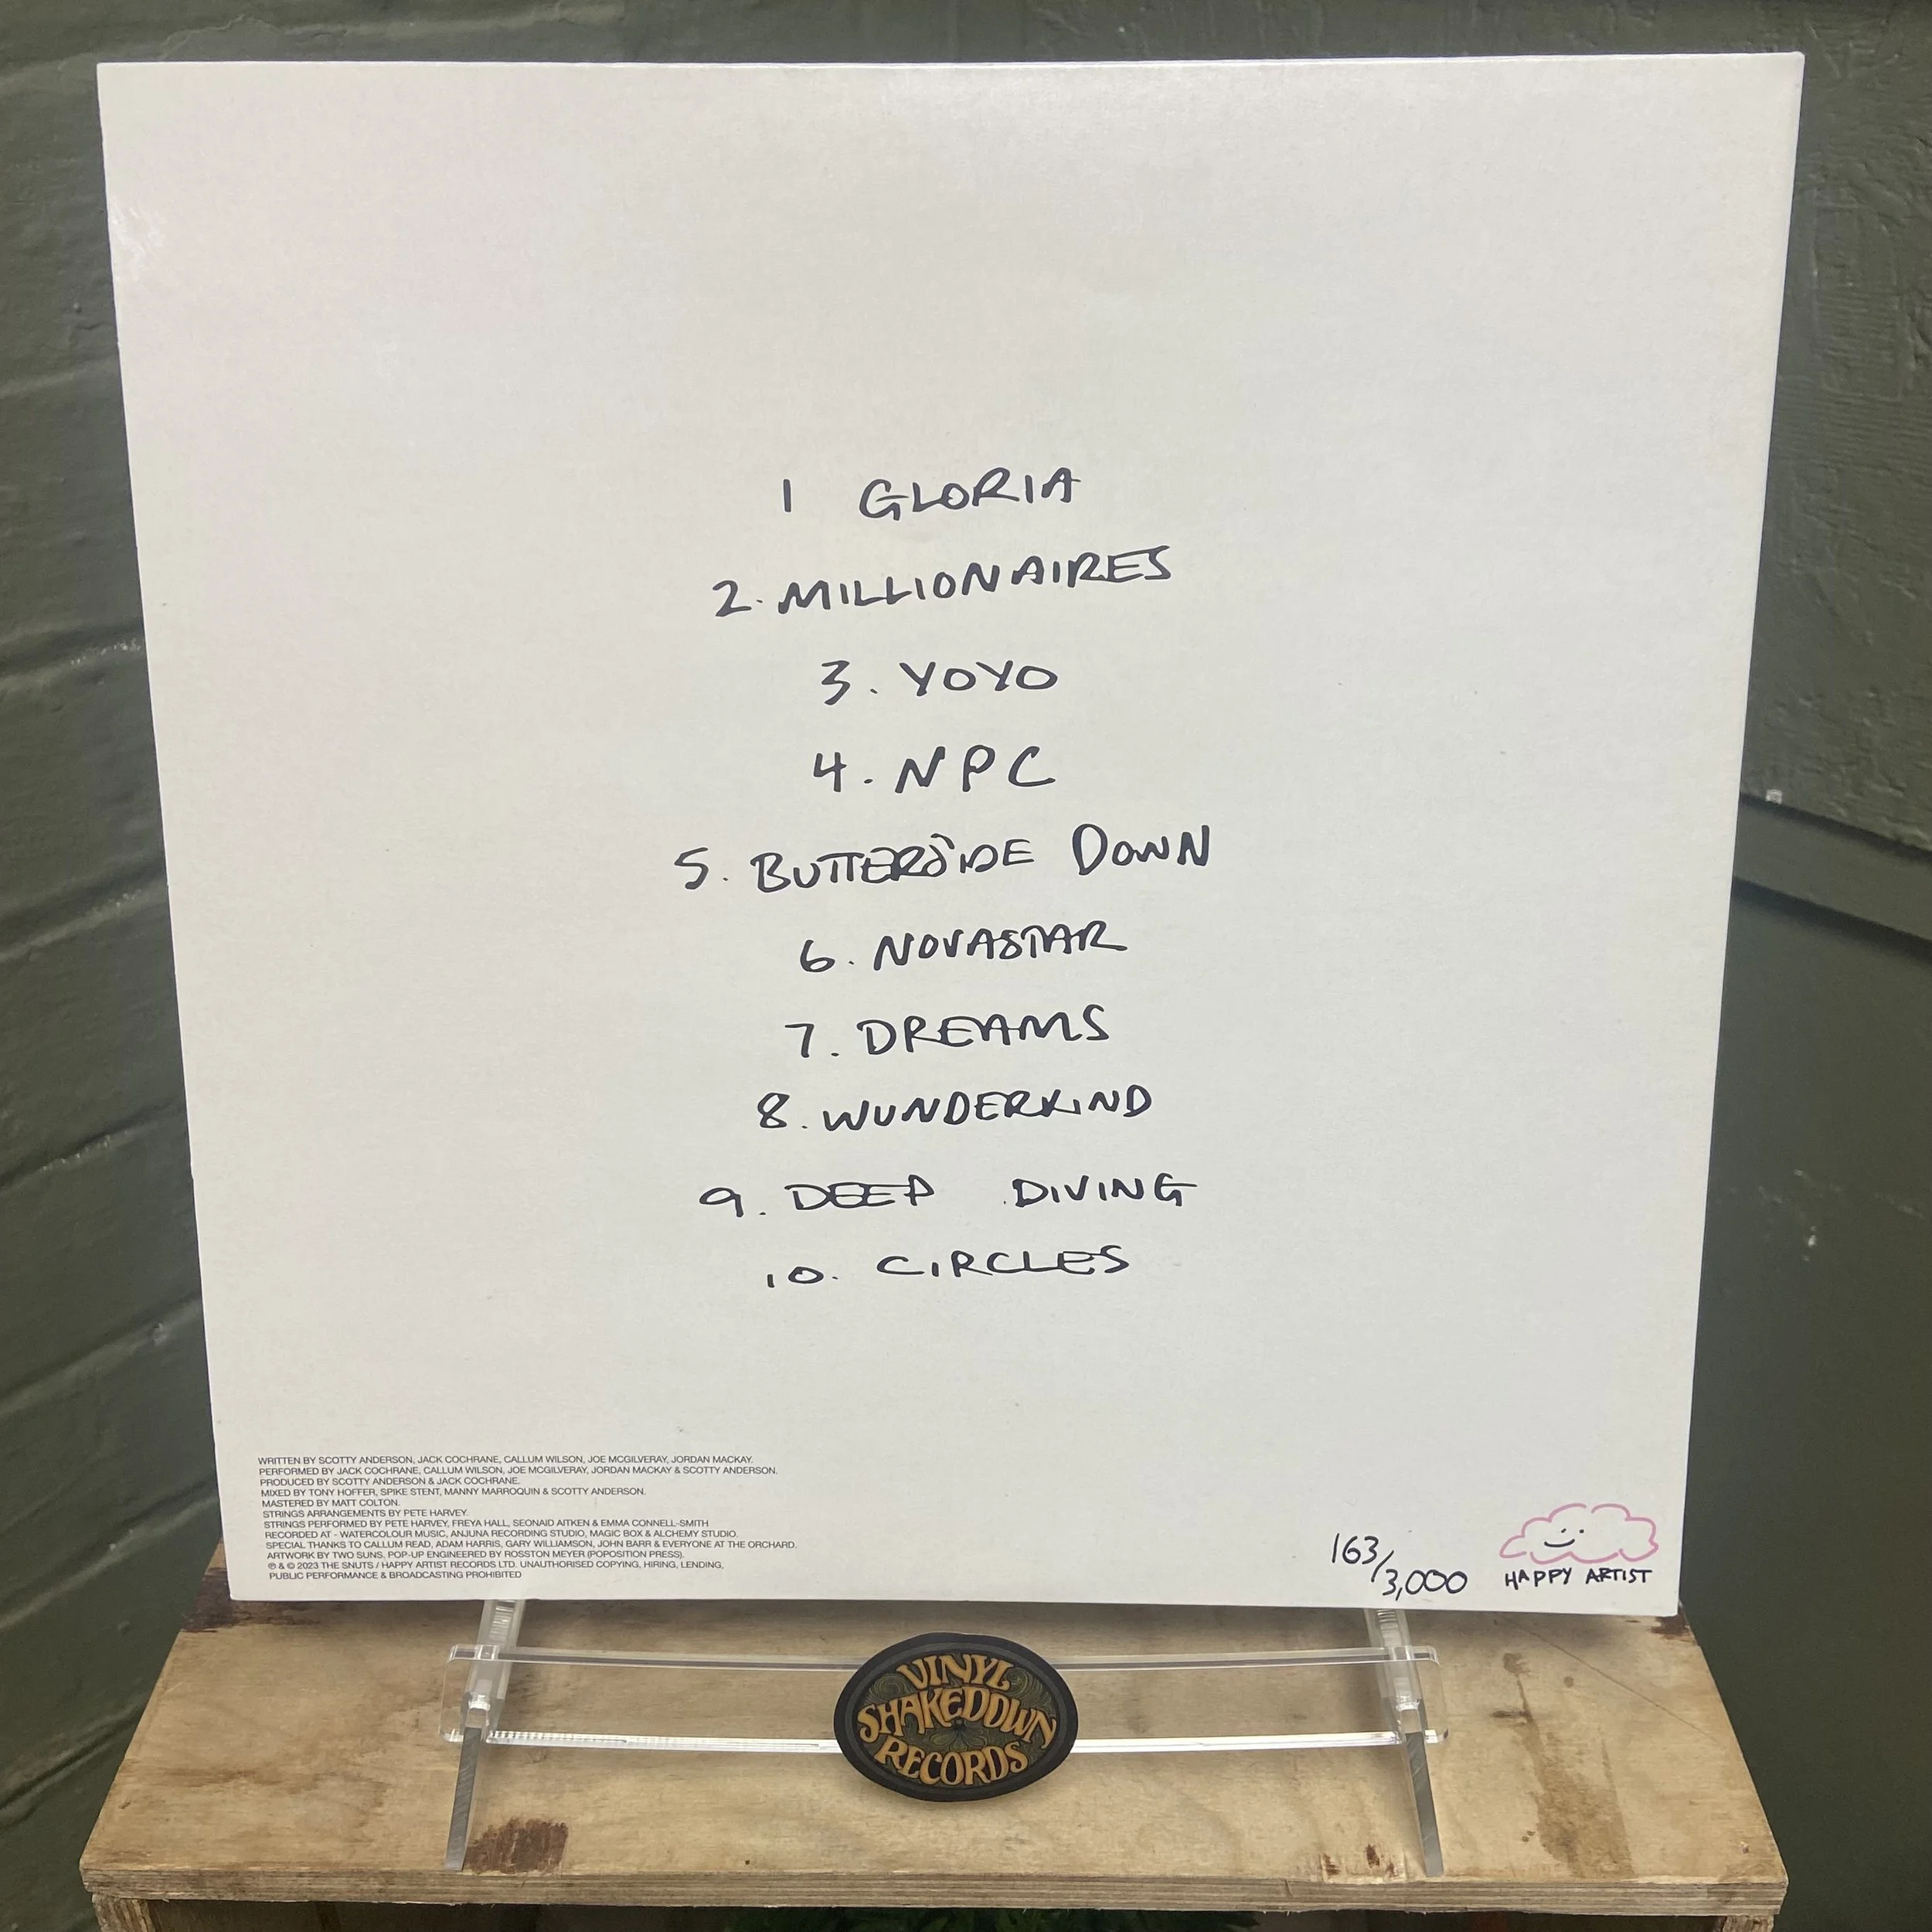 1 GLORIA
2. MILLIONAIRES
3. YOYO
4. NPC
5. BUTTERSIDE DOWN
6. NOVASTAR
7. DREAMS
8. WUNDERKIND
9. DEEP DIVING
10. CIRCLES
WRITTEN BY SCOTTY ANDERSON, JACK COCHRANE, CALLUM WILSON, JOE MCGILVERAY, JORDAN MACKAY.
PERFORMED BY JACK COCHRANE, CALLUM WILSON, JOE MCGILVERAY, JORDAN MACKAY & SCOTTY ANDERSON.
PRODUCED BY SCOTTY ANDERSON & JACK COCHRANE.
MIXED BY TONY HOFFER, SPIKE STENT, MANNY MARROQUIN & SCOTTY ANDERSON.
MASTERED BY MATT COLTON.
STRINGS ARRANGEMENTS BY PETE HARVEY.
STRINGS PERFORMED BY PETE HARVEY, FREYA HALL, SEONAID AITKEN & EMMA CONNELL-SMITH
RECORDED AT - WATERCOLOUR MUSIC, ANJUNA RECORDING STUDIO, MAGIC BOX & ALCHEMY STUDIO.
SPECIAL THANKS TO CALLUM READ, ADAM HARRIS, GARY WILLIAMSON, JOHN BARR & EVERYONE AT THE ORCHARD.
ARTWORK BY TWO SUNS. POP-UP ENGINEERED BY ROSSTON MEYER (POPOSITION PRESS).
℗ & © 2023 THE SNUTS / HAPPY ARTIST RECORDS LTD. UNAUTHORISED COPYING, HIRING, LENDING,
PUBLIC PERFORMANCE & BROADCASTING PROHIBITED
163/3,000
HAPPY ARTIST
VINYL
SHAKEDOWN
RECORDS